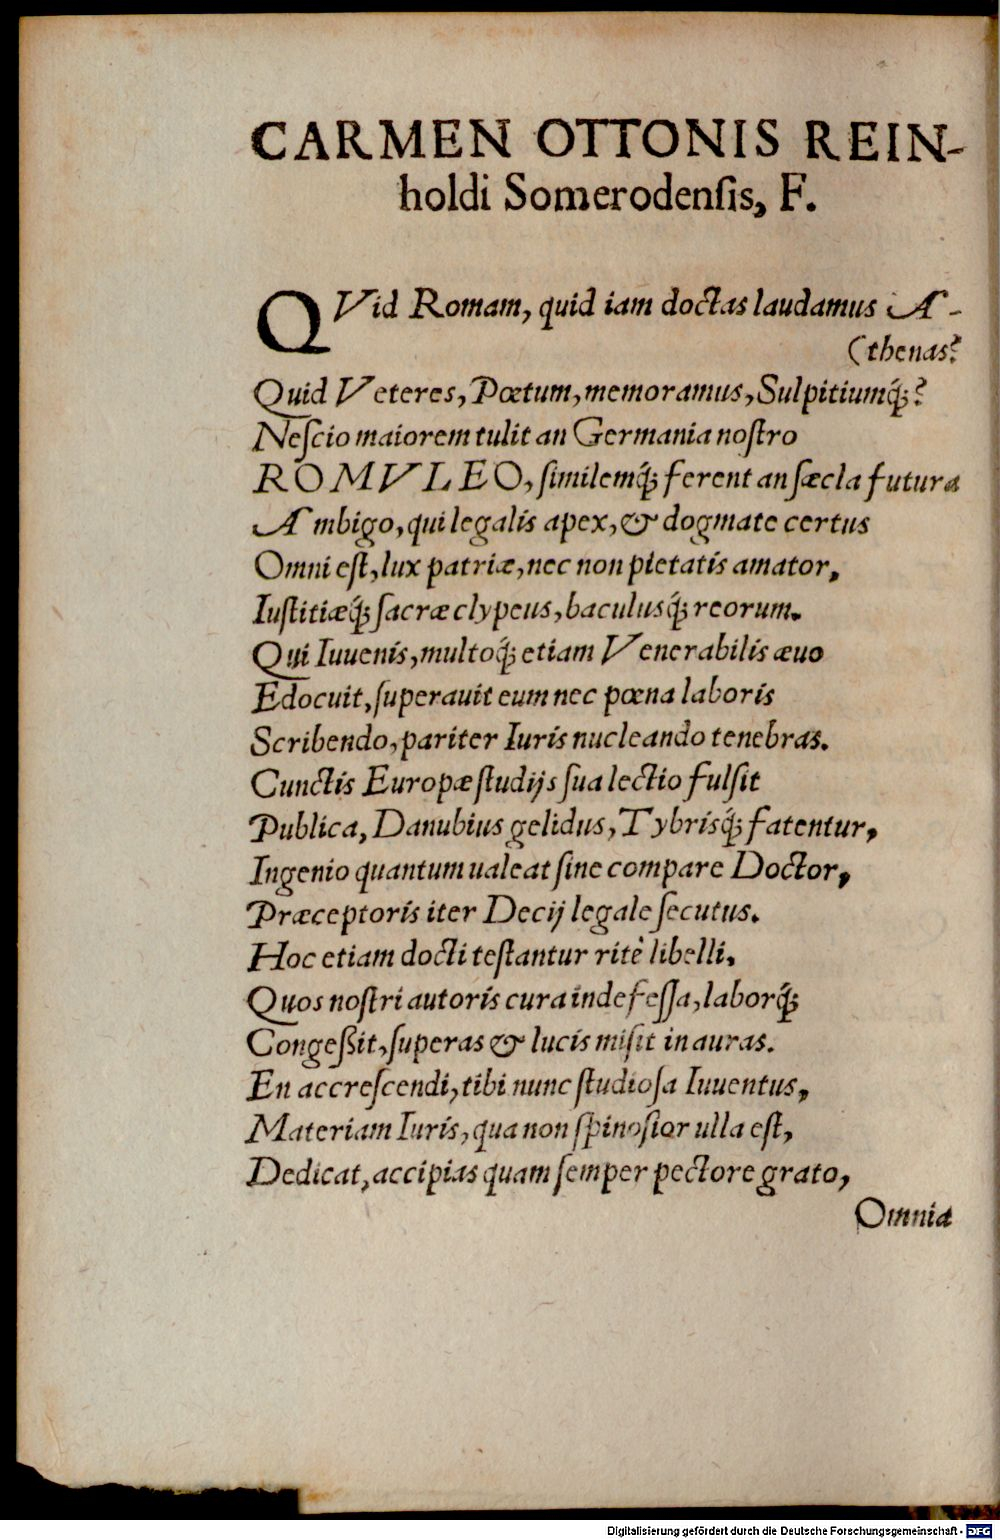 CARMEN OTTONIS REIN-
holdi Somerodenſis, F.
QVid Romam, quid iam doctas laudamus A-
(thenas?
Quid Veteres, Pœtum, memoramus, Sulpitiumq́;?
Neſcio maiorem tulit an Germania noſtro
ROMVLEO, ſimilemq́; ferent an ſæcla futura
Ambigo, qui legalis apex, & dogmate certus
Omni eſt, lux patriæ, nec non pietatis amator,
Iuſtitiæq́; ſacræ clypeus, baculusq́; reorum.
Qui Iuuenis, multoq́; etiam Venerabilis æuo
Edocuit, ſuperauit eum nec pœna laboris
Scribendo, pariter Iuris nucleando tenebras.
Cunctis Europæ ſtudijs ſua lectio fulſit
Publica, Danubius gelidus, Tybrisq́; fatentur,
Ingenio quantum ualeat ſine compare Doctor,
Præceptoris iter Decij legale ſecutus.
Hoc etiam docti teſtantur ritè libelli.
Quos noſtri autoris cura indefeſſa, laborq́;
Congeßit, ſuperas & lucis miſit in auras.
En accreſcendi, tibi nunc ſtudioſa Iuuentus,
Materiam Iuris, qua non ſpinoſior ulla eſt,
Dedicat, accipias quam ſemper pectore grato,
Omnia
Digitalisierung gefördert durch die Deutsche Forschungsgemeinschaft - DFG